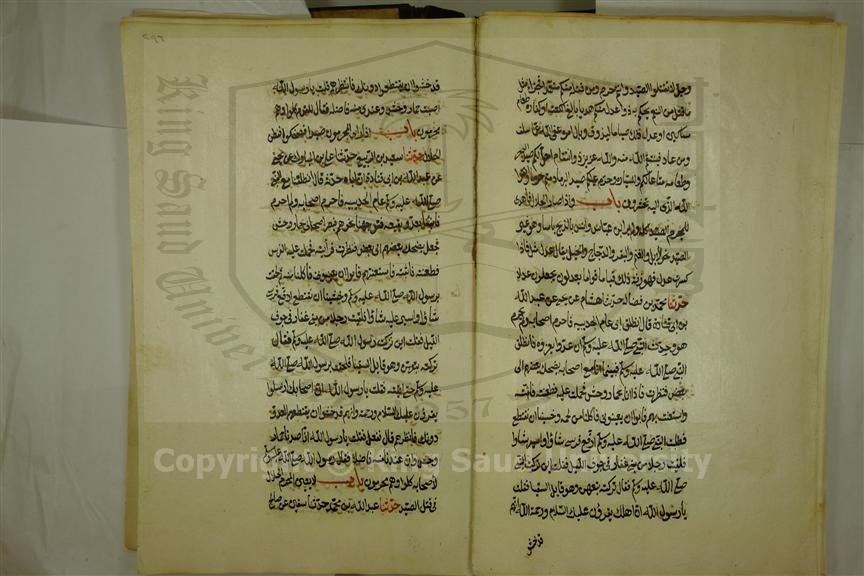 وجل لا تقتلوا الصيد وانتم حرم ومن قتله منكم متعمدا فجزاء مثل
ما قتل من النعم يحكم به ذوا عدل منكم هديا بالغ الكعبة او كفارة طعام
مساكين او عدل ذلك صياما ليذوق وبال امره عفى الله عما سلف
ومن عاد فينتقم الله منه والله عزيز ذو انتقام احل لكم صيد البحر
وطعامه متاعا لكم وللسيارة وحرم عليكم صيد البر ما دمتم حرما واتقوا
الله الذي اليه تحشرون باب واذا صاد الحلال فاهدى
للمحرم الصيد كله ولم ير ابن عباس وانس بالذبح باسا وهو غير
الصيد نحو الابل والغنم والبقر والدجاج والخيل يقال عدل مثل فاذا
كسرت عدل فهو زنة ذلك قياما قواما يعدلون يجعلون عدلا
حدثنا معاذ بن فضالة حدثنا هشام عن يحيى عن عبد الله
بن ابي قتادة قال انطلق ابي عام الحديبية فاحرم اصحابه ولم يحرم
هو وحدث النبي صلى الله عليه وسلم ان عدوا يغزوه فانطلق
النبي صلى الله عليه وسلم فبينما انا مع اصحابه يضحك بعضهم الى
بعض فنظرت فاذا انا بحمار وحش فحملت عليه فطعنته فاثبته
واستعنت بهم فابوا ان يعينوني فاكلنا من لحمه وخشينا ان نقتطع
فطلبت النبي صلى الله عليه وسلم ارفع فرسي شاوا واسير شاوا
فلقيت رجلا من بني غفار في جوف الليل قلت اين تركت النبي
صلى الله عليه وسلم قال تركته بتعهن وهو قايل السقيا فقلت
يا رسول الله ان اهلك يقرؤن عليك السلام ورحمة الله انهم
قد خشوا
قد خشوا ان يقتطعوا دونك فانتظرهم قلت يا رسول الله
اصبت حمار وحش وعندي منه فاضلة فقال للقوم كلوا وهم
محرمون باب اذا راى المحرمون صيدا فضحكوا ففطن
الحلال حدثنا سعيد بن الربيع حدثنا علي بن المبارك عن يحيى
عن عبد الله بن ابي قتادة ان اباه حدثه قال انطلقنا مع النبي
صلى الله عليه وسلم عام الحديبية فاحرم اصحابه ولم احرم
فانبئنا بعدو بغيقة فتوجهنا نحوهم فبصر اصحابي بحمار وحش
فجعل يضحك بعضهم الى بعض فنظرت فرايته فحملت عليه الفرس
فطعنته فاثبته فاستعنتهم فابوا ان يعينوني فاكلنا منه ثم لحقت
برسول الله صلى الله عليه وسلم وخشينا ان نقتطع ارفع فرسي
شاوا واسير عليه شاوا فلقيت رجلا من بني غفار في جوف
الليل فقلت اين تركت رسول الله صلى الله عليه وسلم فقال
تركته بتعهن وهو قايل السقيا فلحقت برسول الله صلى الله
عليه وسلم حتى اتيته فقلت يا رسول الله ان اصحابك ارسلوا
يقرؤن عليك السلام ورحمة وانهم قد خشوا ان يقتطعهم العدو
دونك فانظرهم قال ففعل فقلت يا رسول الله انا اصدنا حمار
وحش وان عندنا منه فاضلة فقال رسول الله صلى الله عليه وسلم
لاصحابه كلوا وهم محرمون باب لا يعين المحرم الحلال
في قتل الصيد حدثنا عبد الله بن محمد حدثنا سفيان عن صالح
King Saud University
1957
Copyright © King Saud University